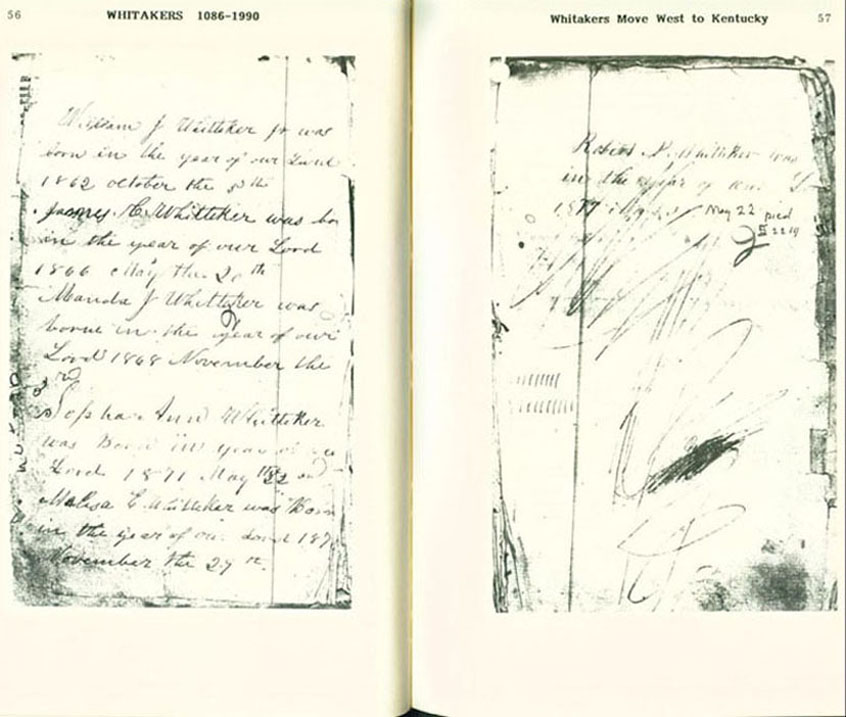 56
WHITAKERS 1086-1990
William J Whitteker Jr was
born in the year of our Lord
1862 october the 5th
James C. Whitteker was bo
in the year of our Lord
1866 May the 20th
Manda J Whitteker was
borne in the year of our
Lord 1868 November the
rd
Sophar Ann Whitteker
was Born in year of
Lord 1871 May the 22
Malisa E Whitteker was Born
in the year of our Lord 187
November the 29th
Whitakers Move West to Kentucky
57
Robert Whitteker was
in the year of our
1877 May 22 died